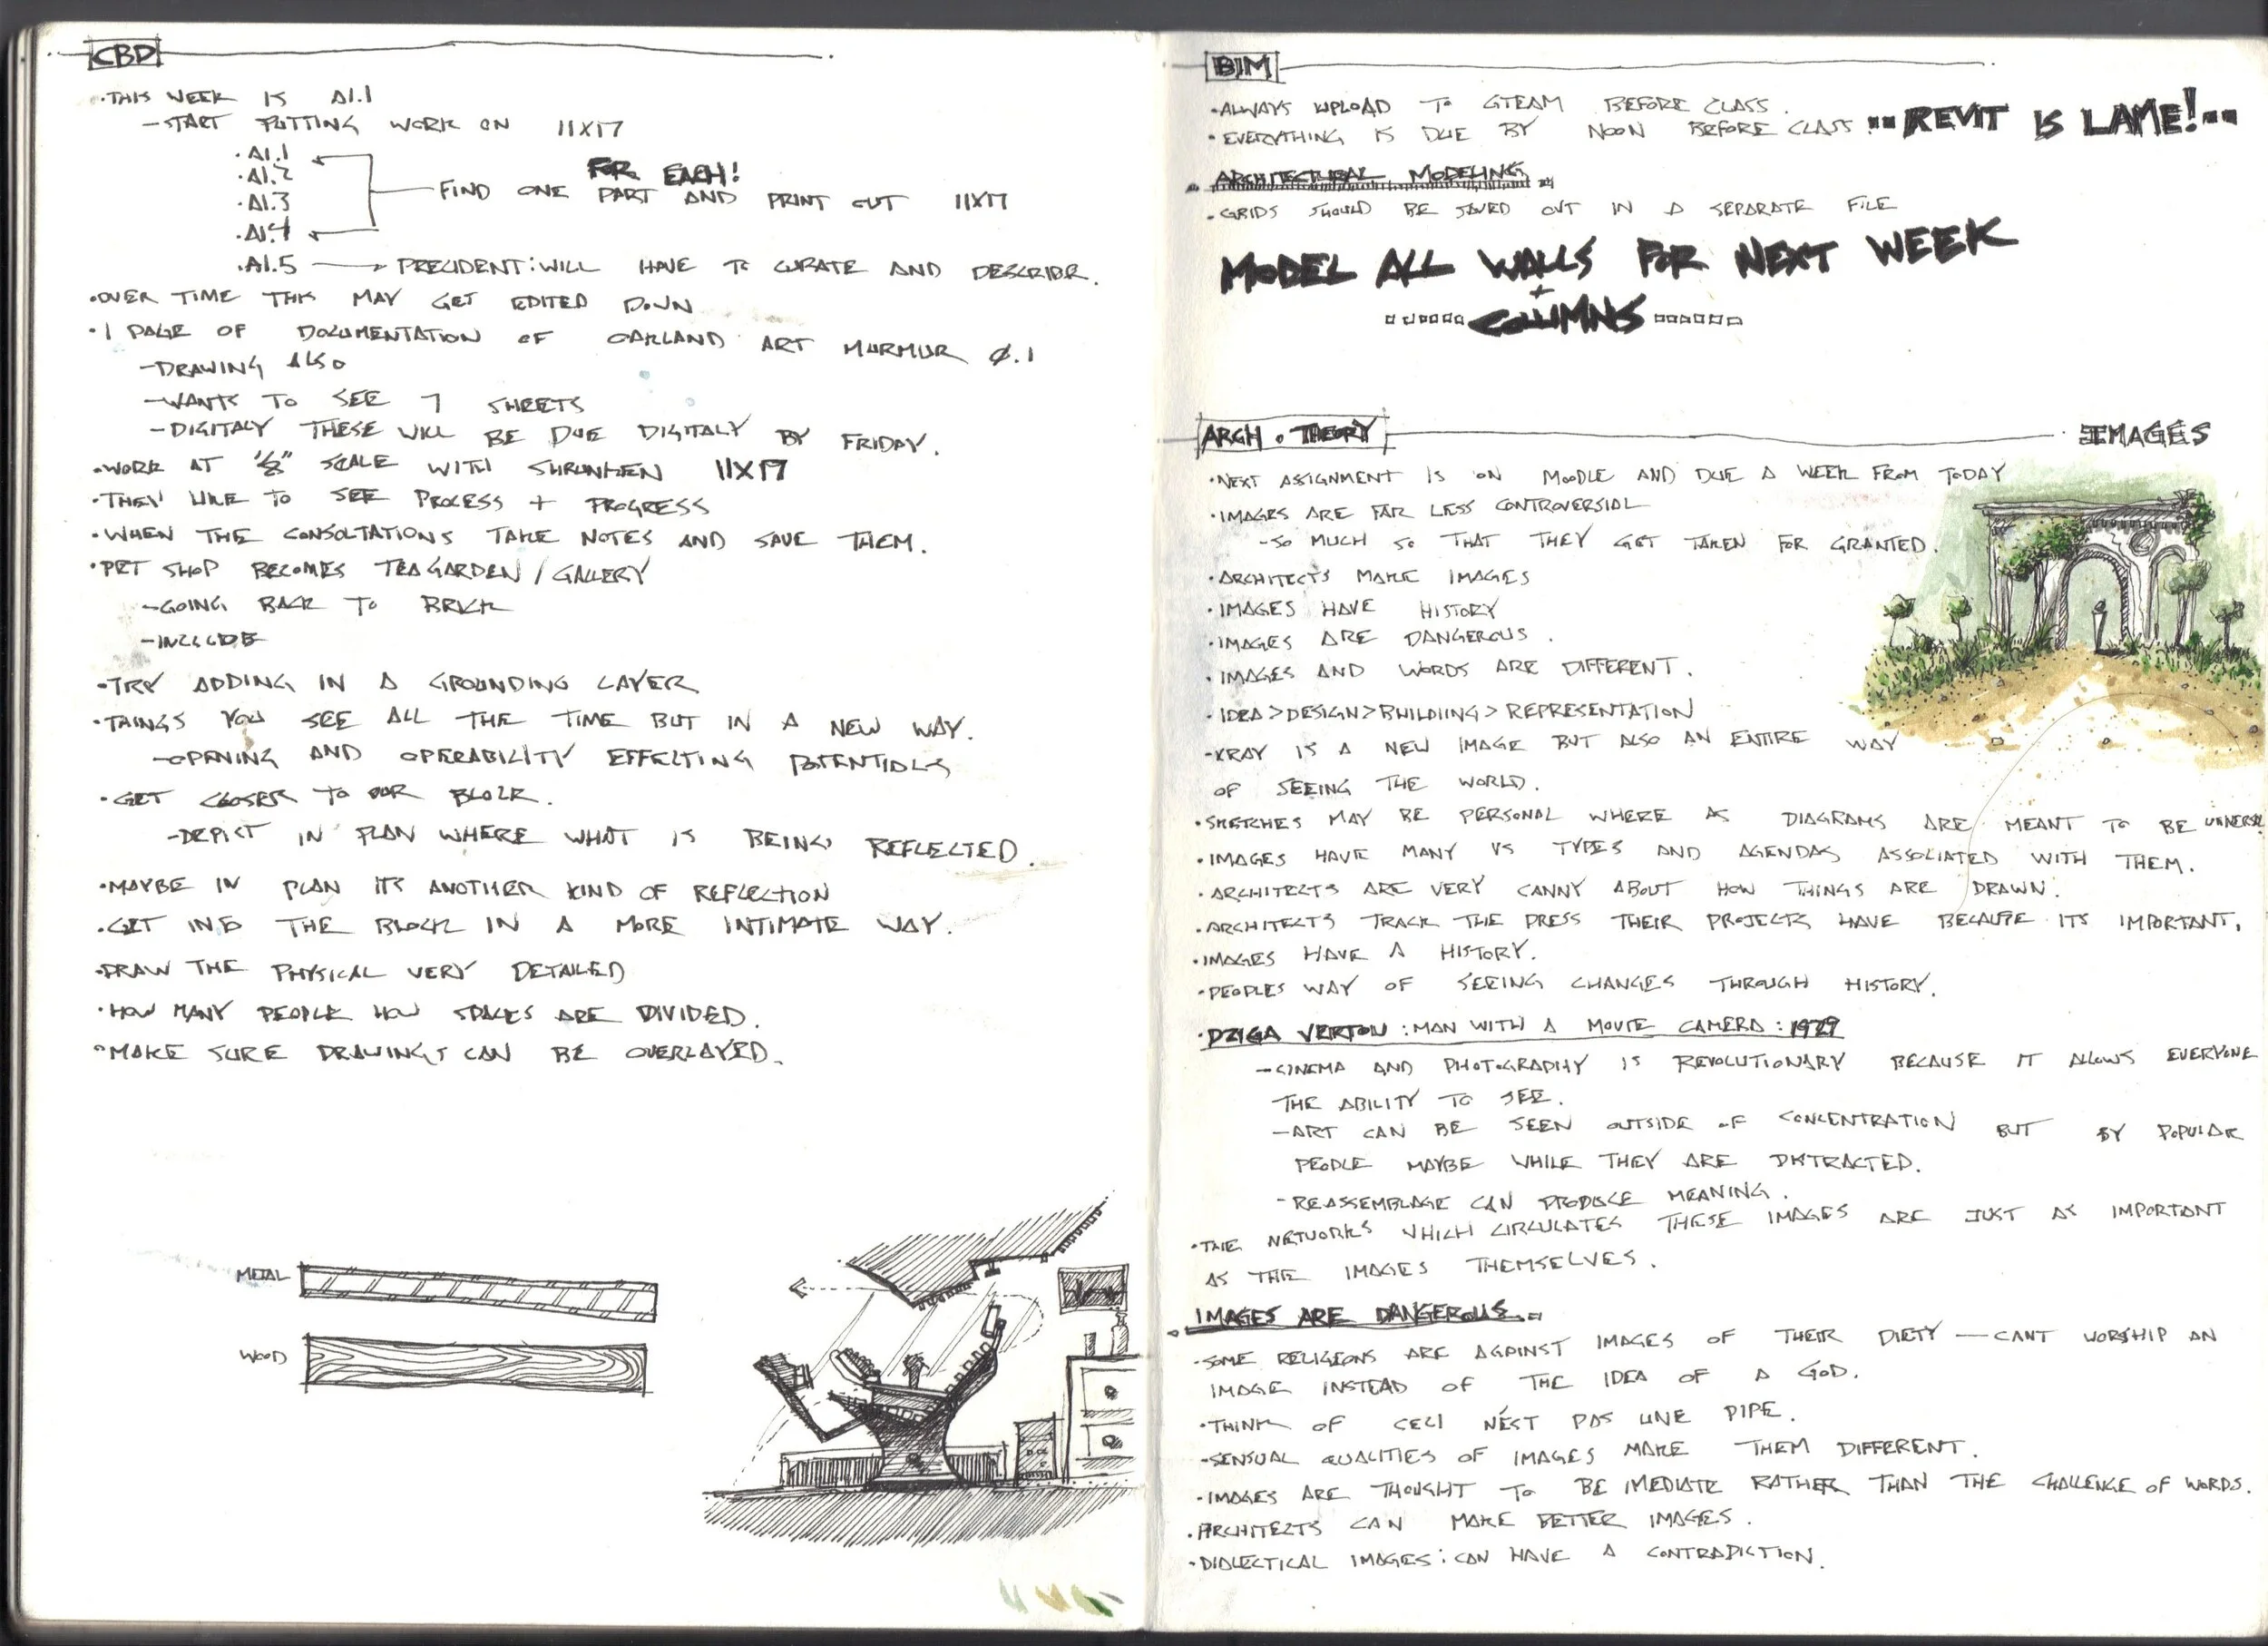 CBD
·THIS WEEK IS A1.1
-START PUTTING WORK ON 11X17
·A1.1
·A1.2
·A1.3
·A1.4
FOR EACH!
FIND ONE PART AND PRINT OUT 11X17
·A1.5 → PRECIDENT: WILL HAVE TO CURATE AND DESCRIBE.
·OVER TIME THIS MAY GET EDITED DOWN
·1 PAGE OF DOCUMENTATION OF OAKLAND ART MURMUR Ø.1
-DRAWING ALSO
-WANTS TO SEE 7 SHEETS
-DIGITALY THESE WILL BE DUE DIGITALY BY FRIDAY.
·WORK AT 1/8" SCALE WITH SHRUNKEN 11X17
·THEY LIKE TO SEE PROCESS + PROGRESS
·WHEN THE CONSOLTATIONS TAKE NOTES AND SAVE THEM.
·PET SHOP BECOMES TEAGARDEN/GALLERY
-GOING BACK TO BRICK
-INCLUDE
·TRY ADDING IN A GROUNDING LAYER
·THINGS YOU SEE ALL THE TIME BUT IN A NEW WAY.
-OPENING AND OPERABILITY EFFECTING POTENTIALS
·GET CLOSER TO OUR BLOCK.
-DEPICT IN PLAN WHERE WHAT IS BEING REFLECTED.
·MAYBE IN PLAN ITS ANOTHER KIND OF REFLECTION
·GET INTO THE BLOCK IN A MORE INTIMATE WAY.
·DRAW THE PHYSICAL VERY DETAILED
·HOW MANY PEOPLE HOW SPACES ARE DIVIDED.
·MAKE SURE DRAWINGS CAN BE OVERLAYED.
METAL
WOOD
BIM
·ALWAYS UPLOAD TO GTEAM BEFORE CLASS.
·EVERYTHING IS DUE BY NOON BEFORE CLASS.
REVIT IS LAME!
ARCHITECTURAL MODELING
·GRIDS SHOULD BE SAVED OUT IN A SEPARATE FILE
MODEL ALL WALLS FOR NEXT WEEK
+
COLUMNS
ARCH. THEORY
IMAGES
·NEXT ASSIGNMENT IS ON MOODLE AND DUE A WEEK FROM TODAY
·IMAGES ARE FAR LESS CONTROVERSIAL
-SO MUCH SO THAT THEY GET TAKEN FOR GRANTED.
·ARCHITECTS MAKE IMAGES
·IMAGES HAVE HISTORY
·IMAGES ARE DANGEROUS.
·IMAGES AND WORDS ARE DIFFERENT.
·IDEA>DESIGN>BUILDIING>REPRESENTATION
·XRAY IS A NEW IMAGE BUT ALSO AN ENTIRE WAY
OF SEEING THE WORLD.
·SKETCHES MAY BE PERSONAL WHERE AS DIAGRAMS ARE MEANT TO BE UNIVERSAL
·IMAGES HAVE MANY VS TYPES AND AGENDAS ASSOCIATED WITH THEM.
·ARCHITECTS ARE VERY CANNY ABOUT HOW THINGS ARE DRAWN.
·ARCHITECTS TRACK THE PRESS THEIR PROJECTS HAVE BECAUSE ITS IMPORTANT.
·IMAGES HAVE A HISTORY.
·PEOPLES WAY OF SEEING CHANGES THROUGH HISTORY.
·DZIGA VERTOV: MAN WITH A MOVIE CAMERA: 1929
-CINEMA AND PHOTOGRAPHY IS REVOLUTIONARY BECAUSE IT ALLOWS EVERYONE
THE ABILITY TO SEE.
-ART CAN BE SEEN OUTSIDE OF CONCENTRATION BUT BY POPULAR
PEOPLE MAYBE WHILE THEY ARE DISTRACTED.
-REASSEMBLAGE CAN PRODUCE MEANING.
·THE NETWORKS WHICH CIRCULATES THESE IMAGES ARE JUST AS IMPORTANT
AS THE IMAGES THEMSELVES.
IMAGES ARE DANGEROUS
·SOME RELIGIONS ARE AGAINST IMAGES OF THEIR DIETY — CANT WORSHIP AN
IMAGE INSTEAD OF THE IDEA OF A GOD.
·THINK OF CECI N'EST PAS UNE PIPE.
·SENSUAL QUALITIES OF IMAGES MAKE THEM DIFFERENT.
·IMAGES ARE THOUGHT TO BE IMEDIATE RATHER THAN THE CHALLENGE OF WORDS.
·ARCHITECTS CAN MAKE BETTER IMAGES.
·DIALECTICAL IMAGES: CAN HAVE A CONTRADICTION.